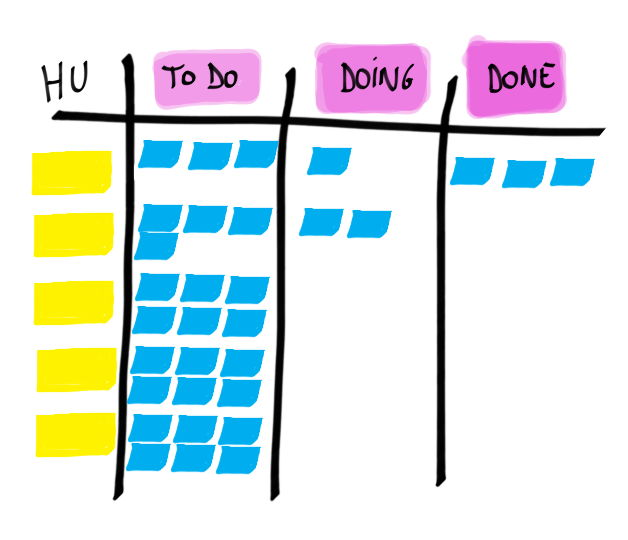 HU TO DO DOING DONE